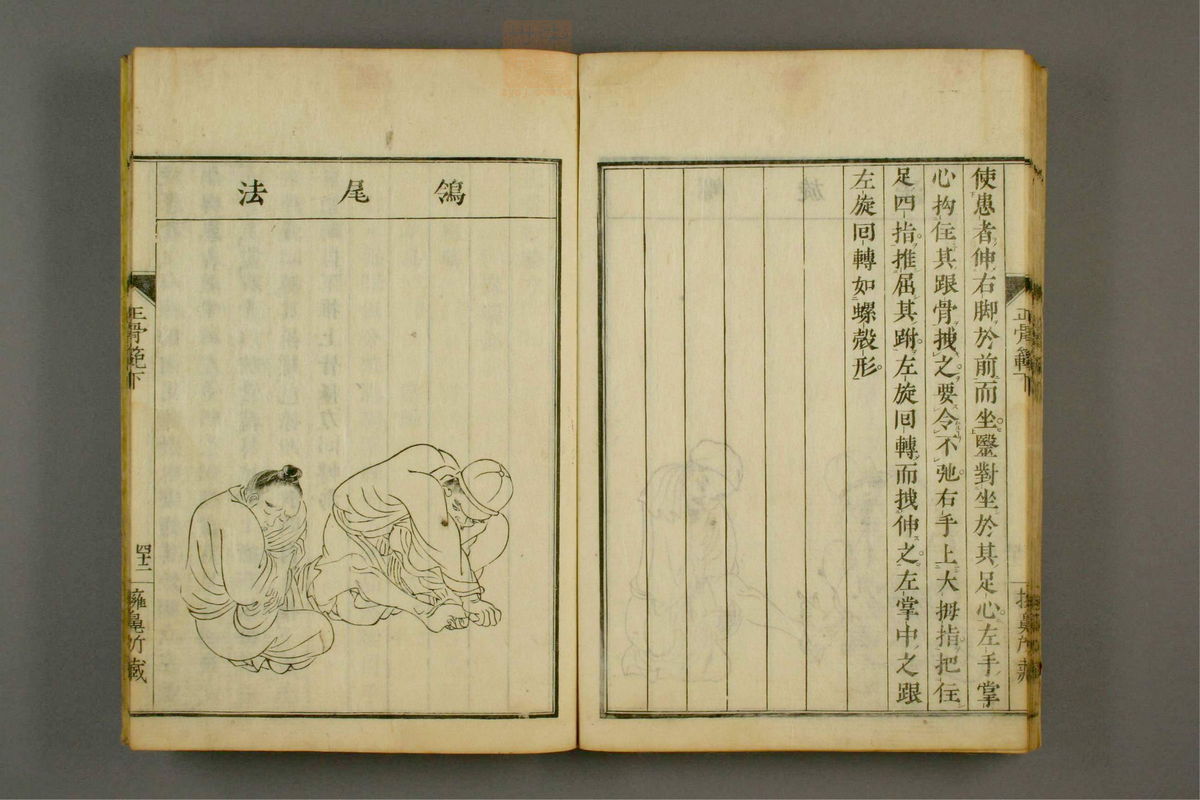 使患者伸右脚於前而坐毉對坐於其足心左手掌
心拘住其跟骨拽之要令不弛右手上大拇指把住
足四指推屈其跗左旋回轉而拽伸之左掌中之跟
左旋回轉如螺殻形
正骨範下
鴿尾法
正骨範下
四十二
擁鼻所藏